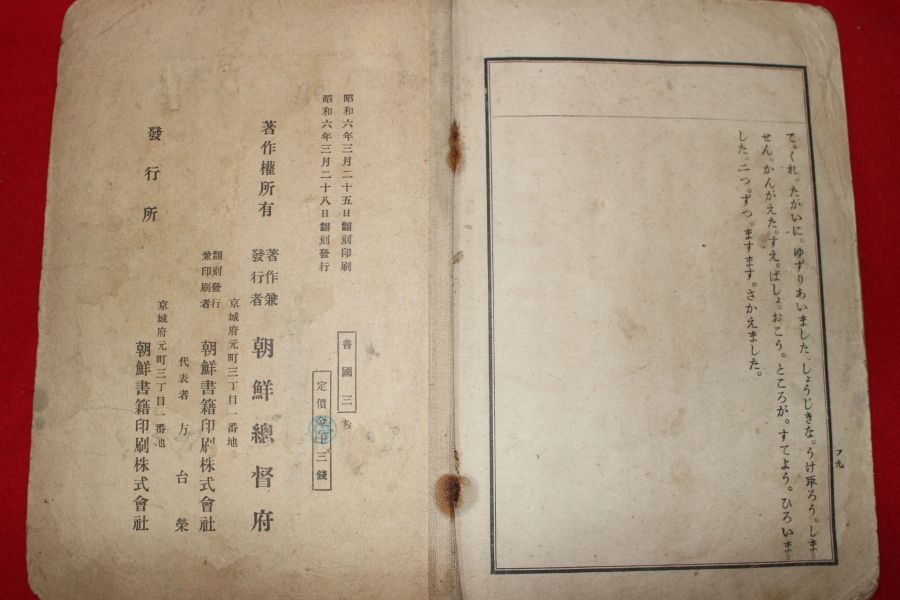 て。くれ。たがいに。ゆずりあいました。しょうじきな。うけ取ろう。しま=
せん。かんがえた。すえ。ばしょ。おこう。ところが。すてよう。ひろいま=
した。二つ。ずつ。ますます。さかえました。
フ九
昭和六年三月二十五日翻刻印刷
昭和六年三月二十八日翻刻發行
普國三ち
定價金十三錢
著作權所有
著作兼
發行者
朝鮮總督府
京城府元町三丁目一番地
翻刻發行
兼印刷者
朝鮮書籍印刷株式會社
代表者 方台榮
京城府元町三丁目一番地
發行所
朝鮮書籍印刷株式會社